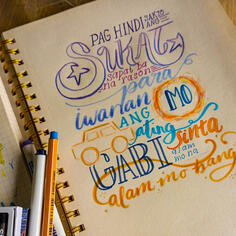 PAG HINDI SAKTO
ANG
SUKAT
sapat ba
na rason
para
iwanan MO
ANG
ating sinta
GABI alam
mo na
alam mo bang